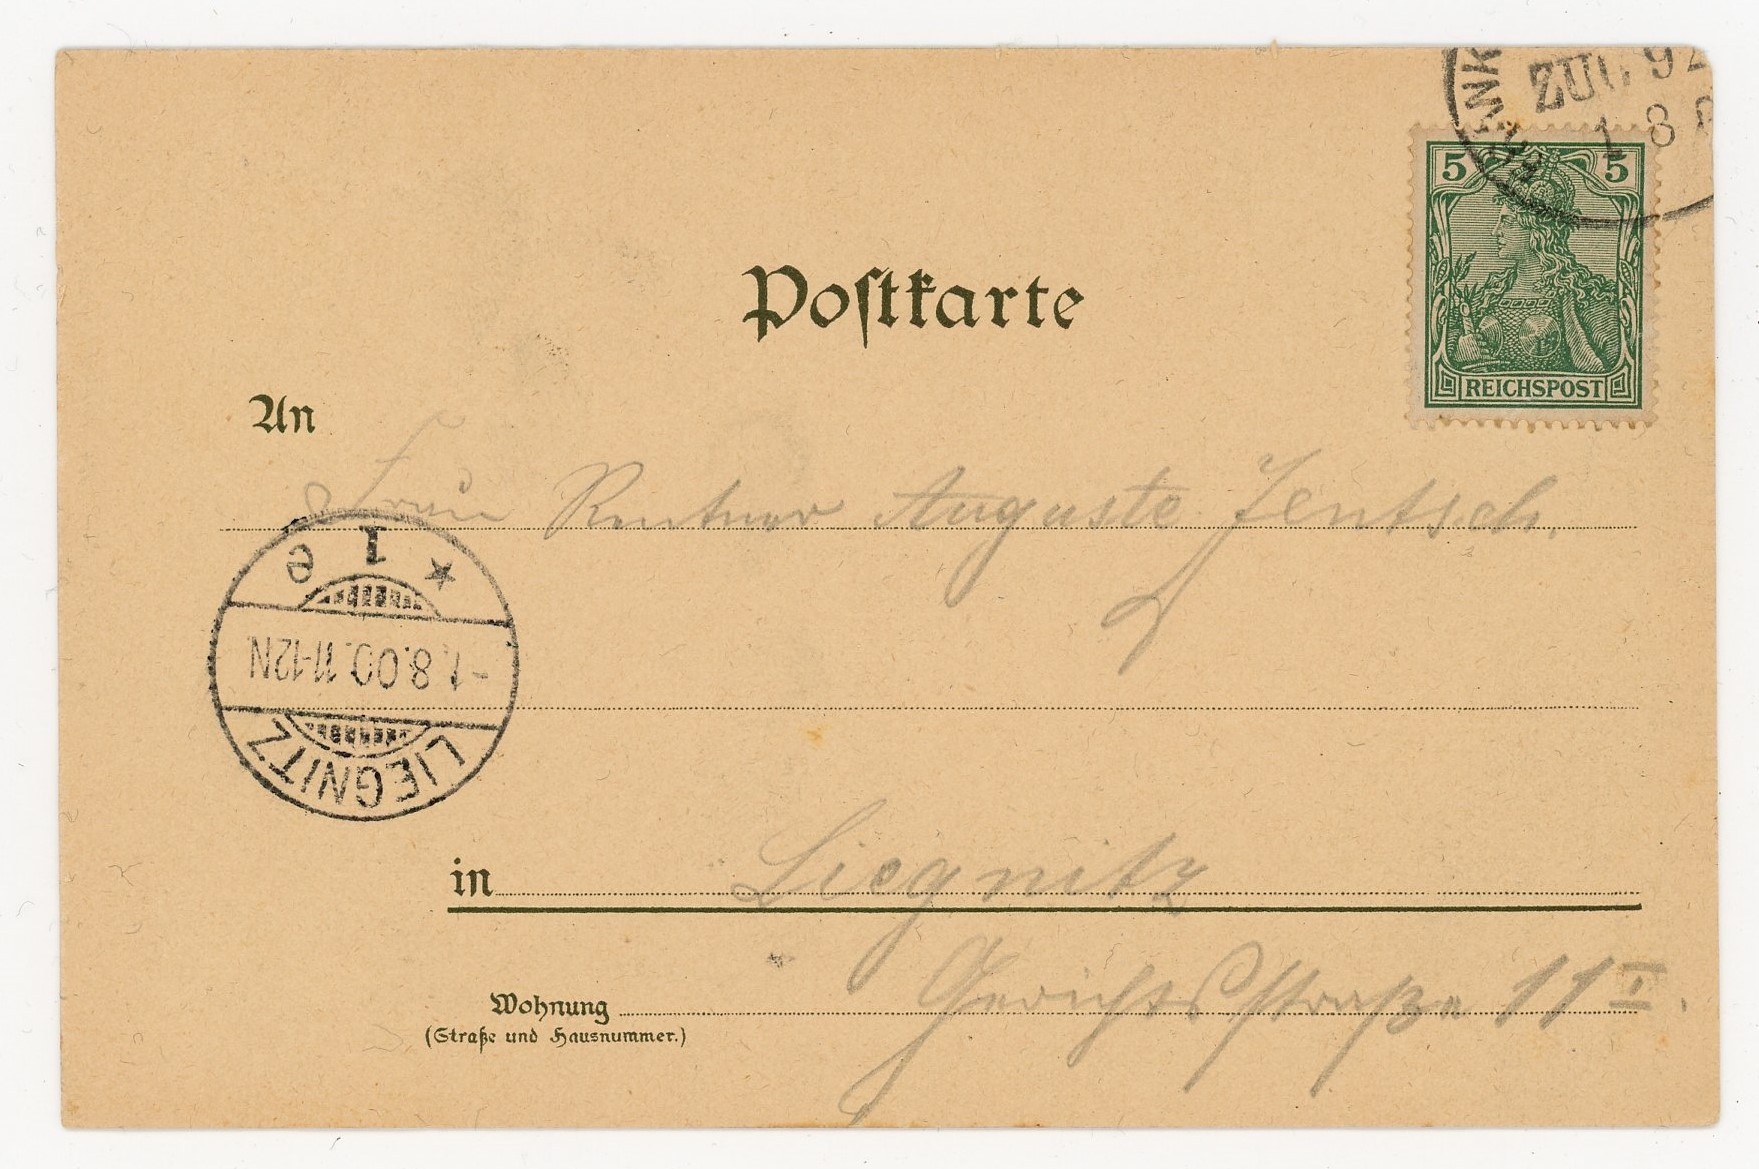 ZUG 92
1 8
5 5
REICHSPOST
Postkarte
An
Frau Rentner Auguste Jentsch.
* 1 e
-1.8.00.11-12N
LIEGNITZ
in Liegnitz
Wohnung Gerichtsstraße 11 I.
(Straße und Hausnummer.)